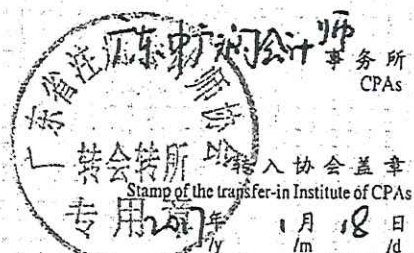 事务所
CPAs
广东省注册会计师协会
转会转所
专用章
转入协会盖章
Stamp of the transfer-in Institute of CPAs
2017年 1月 18日
/y /m /d